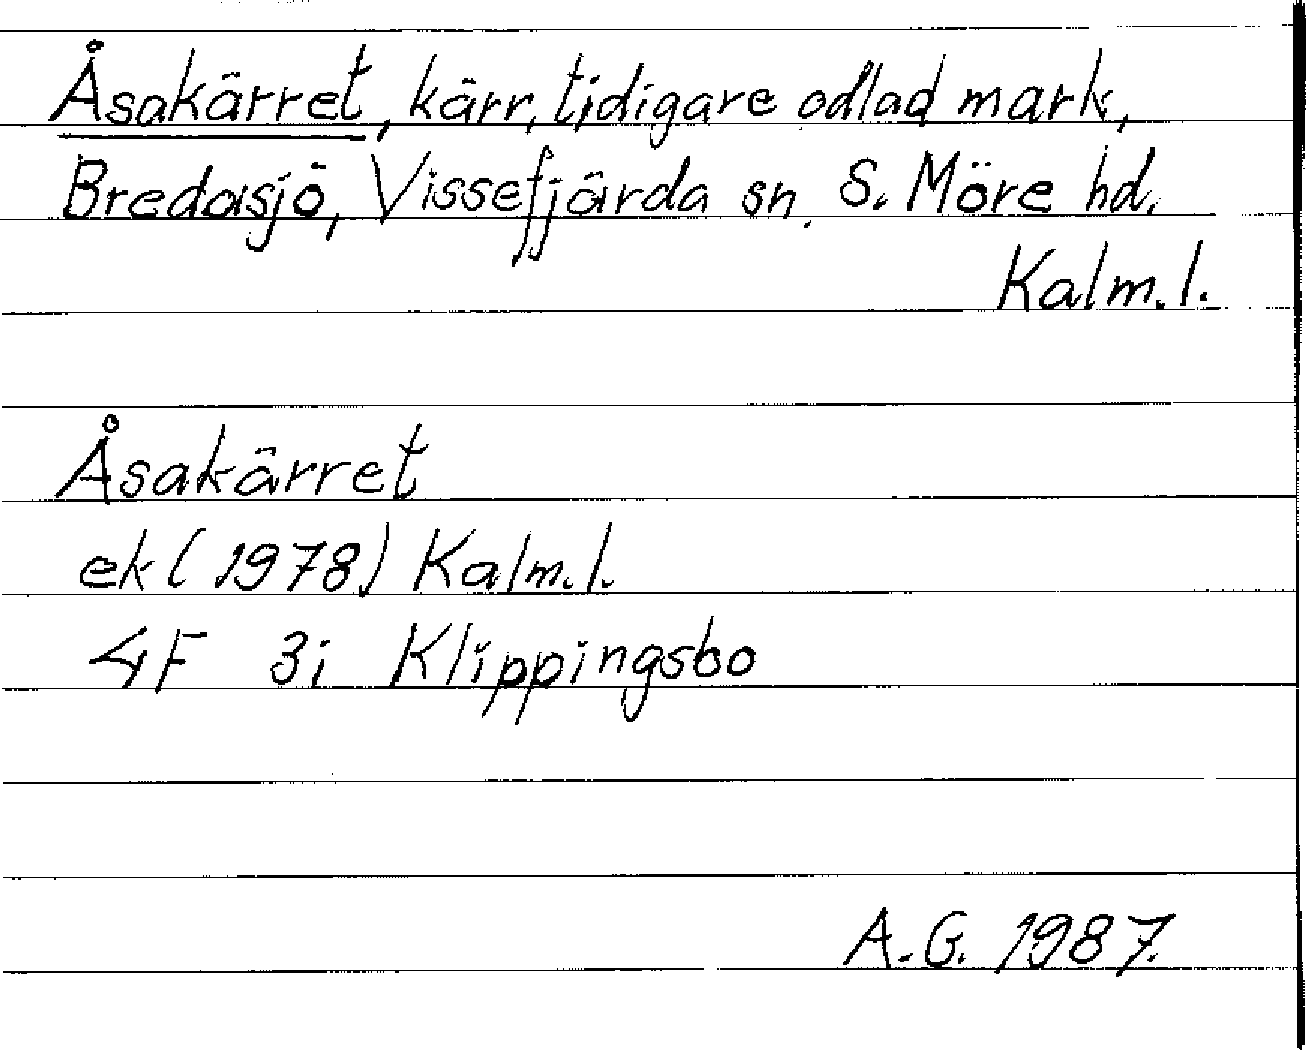 Åsakärret, kärr, tidigare odlad mark,
Bredasjö, Vissefjärda sn. S. Möre hd.
Kalm. l.
Åsakärret
ek (1978) Kalm. l.
4F 3i Klippingsbo
A. G. 1987.